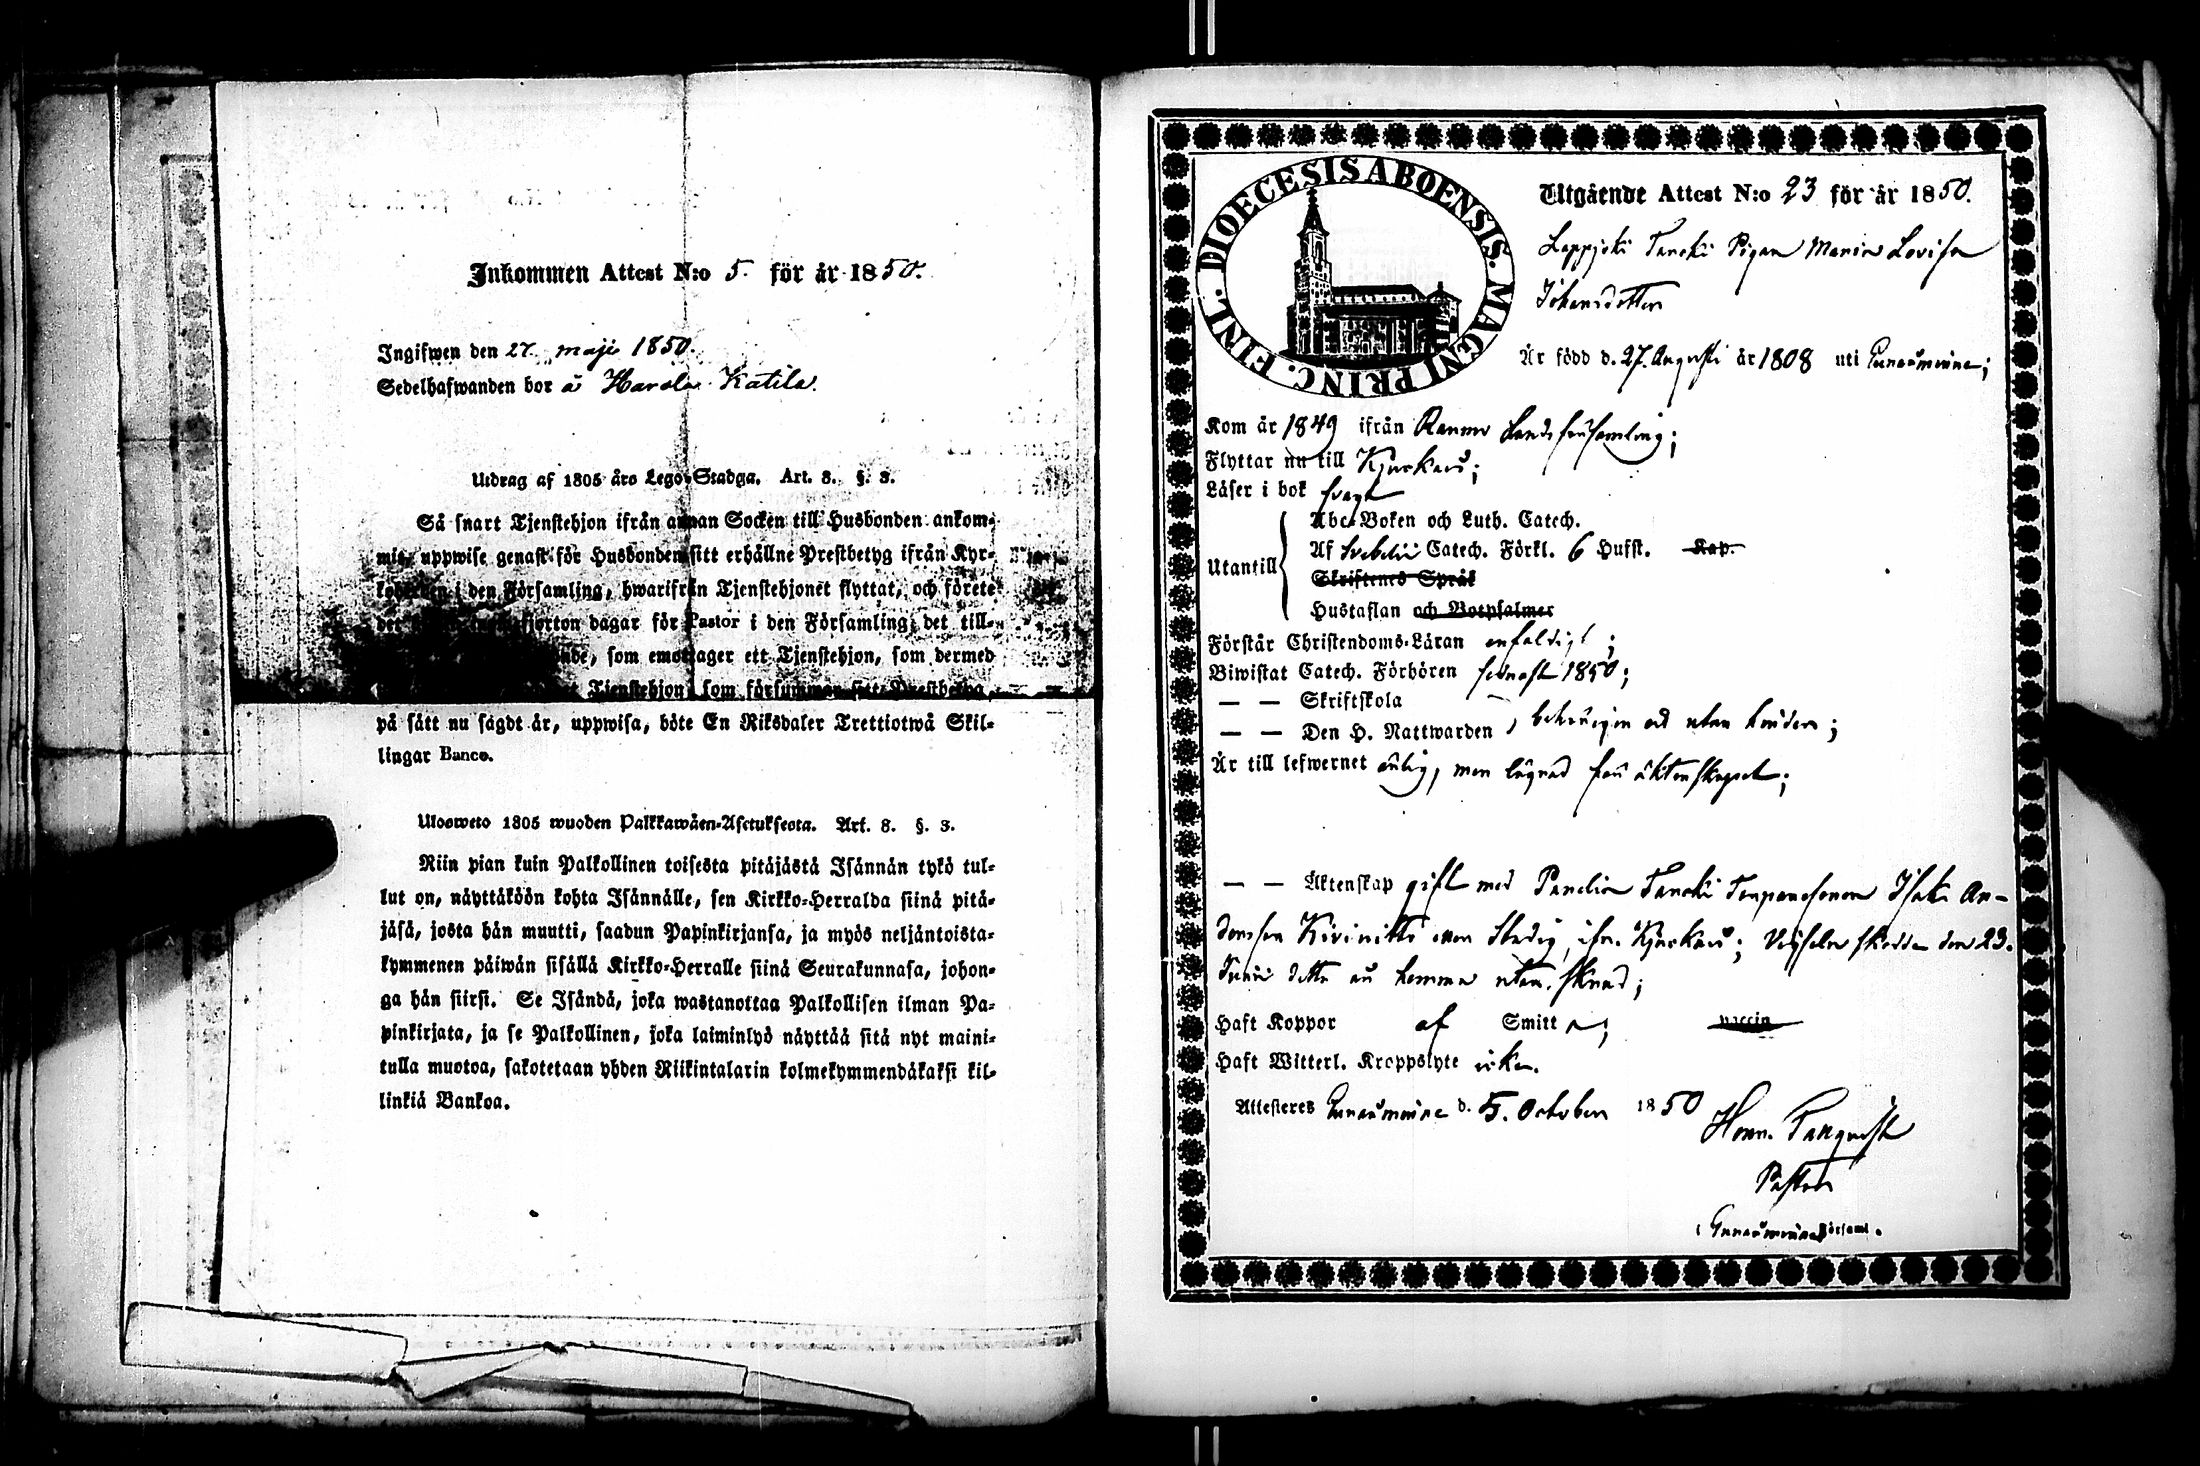 Inkommen Attest N:o 5. för år 1850.
Ingifwen den 27. maji 1850.
Sedelhafwanden bor å Harola Katila.
Utdrag af 1805 års Lego-Stadga. Art. 8. §. 3.
Så snart Tjenstehjon ifrån annan Socken till Husbonden ankom-
mit, uppwise genast för Husbonden sitt erhållne Prestbetyg ifrån Kyr-
i den Församling, hwarifrån Tjenstehjonet flyttat, och förete
det fjorton dagar för Pastor i den Församling, det till-
som emottager ett Tjenstehjon, som dermed
Tjenstehjon, som försummar sitt Prestbetyg,
på sätt nu sagdt är, uppwisa, böte En Riksdaler Trettiotwå Skil-
lingar Banco.
Ulosweto 1805 wuoden Palkkawäen-Asetuksesta. Art. 8. §. 3.
Niin pian kuin Palkollinen toisesta pitäjästä Isännän tykö tul-
lut on, näyttäköön kohta Isännälle, sen Kirkko-Herralda siinä pitä-
jäsä, josta hän muutti, saadun Papinkirjansa, ja myös neljäntoista-
kymmenen päiwän sisällä Kirkko-Herralle siinä Seurakunnasa, johon-
ga hän siirsi. Se Isändä, joka wastanottaa Palkollisen ilman Pa-
pinkirjata, ja se Palkollinen, joka laiminlyö näyttää sitä nyt maini-
tulla muotoa, sakotetaan yhden Riikintalarin kolmekymmendäkaksi kil-
linkiä Bankoa.
DIOECESIS ABOENSIS. MAGNI PRINC. FINL.
Utgående Attest N:o 23 för år 1850.
Lappjoki Tancki Pigan Maria Lovisa
Johansdotter
Är född d. 27. Augusti år 1808 uti Euraåminne;
Kom år 1849 ifrån Raumo Landsförsamling;
Flyttar nu till Kjuckais;
Läser i bok svagt
Abc-Boken och Luth. Catech.
Utantill Af Svebelii Catech. Förkl. 6 Hufst. Kap.
Skriftenes Språk
Hustaflan och Botpsalmer
Förstår Christendoms-Läran enfaldigt;
Biwistat Catech. Förhören senast 1850;
— — Skriftskola
— — Den H. Nattwarden, behörigen och utan hinder;
Är till lefwernet ärlig, men lägrad före äktenskapet;
— — Äktenskap gift med Panelia Tancki Isak An-
dersson Kivinitti ifr. Kjuckais; den 23.
Junii detta år hemma utan skrud;
Haft Koppor af Smitta; vaccin
Haft Witterl. Kroppslyte icke.
Attesteres Euraåminne d. 5. October 1850
Pastor
i Euraåminne Församl.